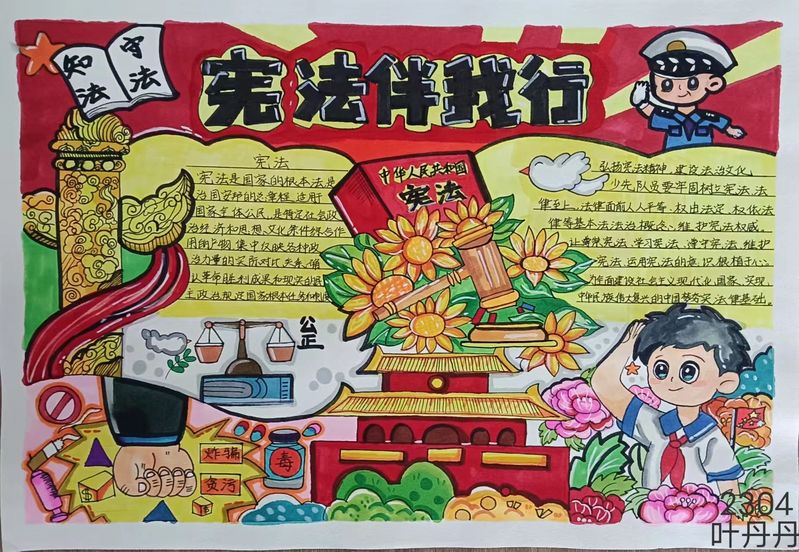 知法
守法
宪法伴我行
中华人民共和国
宪法
宪法
宪法是国家的根本法是
治国安邦的总章程,适用
国家全体公民,是特定社会政
治经济和思想文化条件综合作
用的产物集中反映各种政
治力量的实际对比关系,确
认革命胜利成果和现实的民
主政治,规定国家根本任务和制度
弘扬宪法精神,建设法治文化,
少先队员要牢固树立宪法法
律至上、法律面前人人平等、权由法定、权依法
律等基本法治概念、维护宪法权威。
让尊崇宪法、学习宪法、遵守宪法、维护
宪法、运用宪法的意识根植于心
为建设社会主义现代化国家、实现
中华民族伟大复兴的中国梦夯实法律基础。
公正
诈骗
贪污
毒
2304
叶丹丹